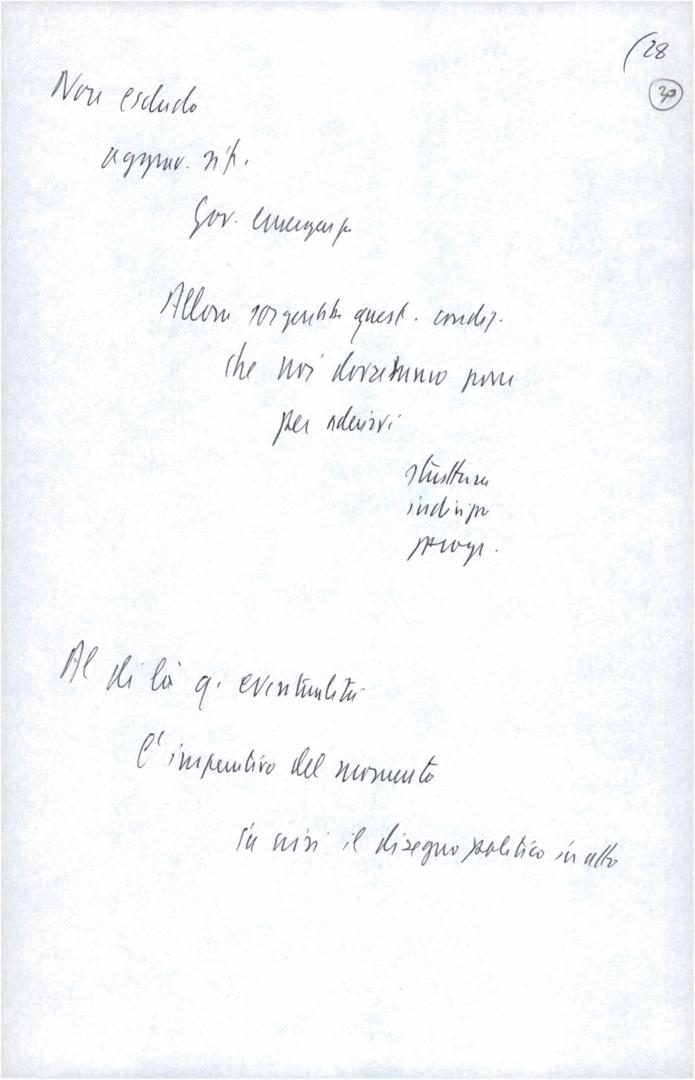 (28
30
Non escludo
aggrav. sit.
Gov. emergenza
Allora sorgerebbe quest. condiz.
che noi dovremmo porre
per aderirvi
struttura
indirizzo
progr.
Al di là q. eventualità
l'imperativo del momento
il disegno politico in atto